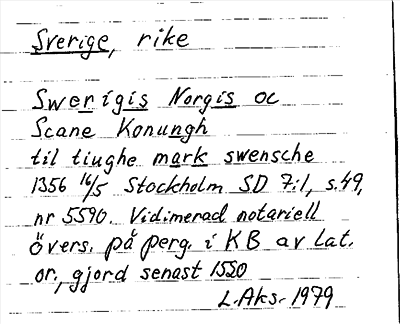 Sverige, rike
Swerigis Norgis oc
Scane Konungh
til tiughe mark swensche
1356 16/5 Stockholm SD 7:1, s.49,
nr 5590. Vidimerad notariell
övers. på perg. i KB av lat.
or., gjord senast 1520
L.Aks. 1979